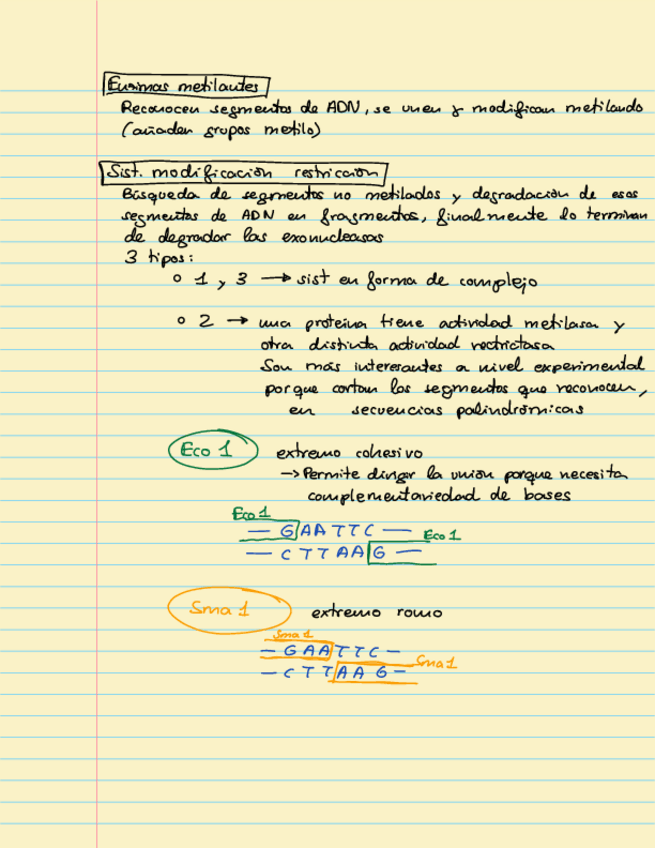 Enzimas metilantes
Reconocen segmentos de ADN, se unen y modifican metilando
(añaden grupos metilo)
Sist. modificación restricción
Búsqueda de segmentos no metilados y degradación de esos
segmentos de ADN en fragmentos, finalmente lo terminan
de degradar las exonucleasas
3 tipos:
o 1 y 3 → sist en forma de complejo
o 2 → una proteína tiene actividad metilasa y
otra distinta actividad restrictasa
Son más interesantes a nivel experimental
porque cortan los segmentos que reconocen,
en secuencias palindrómicas
Eco 1 extremo cohesivo
→ Permite dirigir la unión porque necesita
complementariedad de bases
Eco 1
— G A A T T C — Eco 1
— C T T A A G —
Sma 1 extremo romo
Sma 1
— G A A T T C —
Sma 1
— C T T A A G —